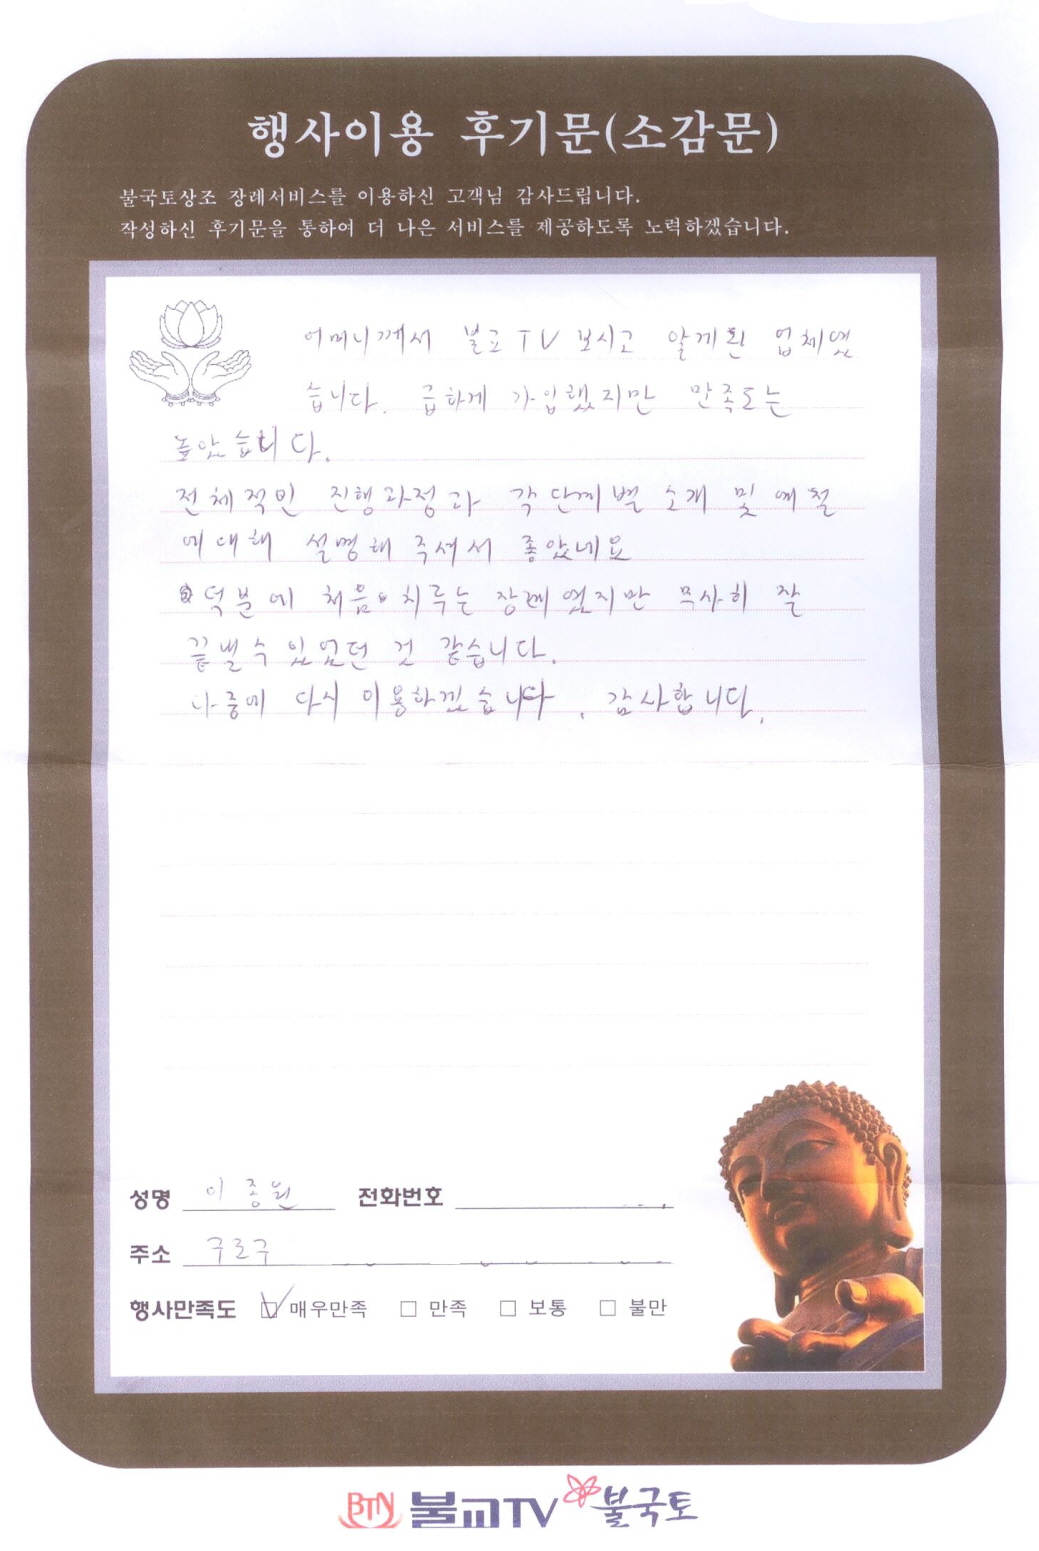 행사이용 후기문(소감문)
불국토상조 장례서비스를 이용하신 고객님 감사드립니다.
작성하신 후기문을 통하여 더 나은 서비스를 제공하도록 노력하겠습니다.
어머니께서 불교TV 보시고 알게된 업체였
습니다. 급하게 가입했지만 만족도는
높았습니다.
전체적인 진행과정과 각 단계별 소개 및 예절
에대해 설명해 주셔서 좋았네요
덕분에 처음 치루는 장례였지만 무사히 잘
끝낼수 있었던 것 같습니다.
나중에 다시 이용하겠습니다. 감사합니다.
성명 이종원 전화번호
주소 구로구
행사만족도 매우만족 만족 보통 불만
BTN 불교TV 불국토